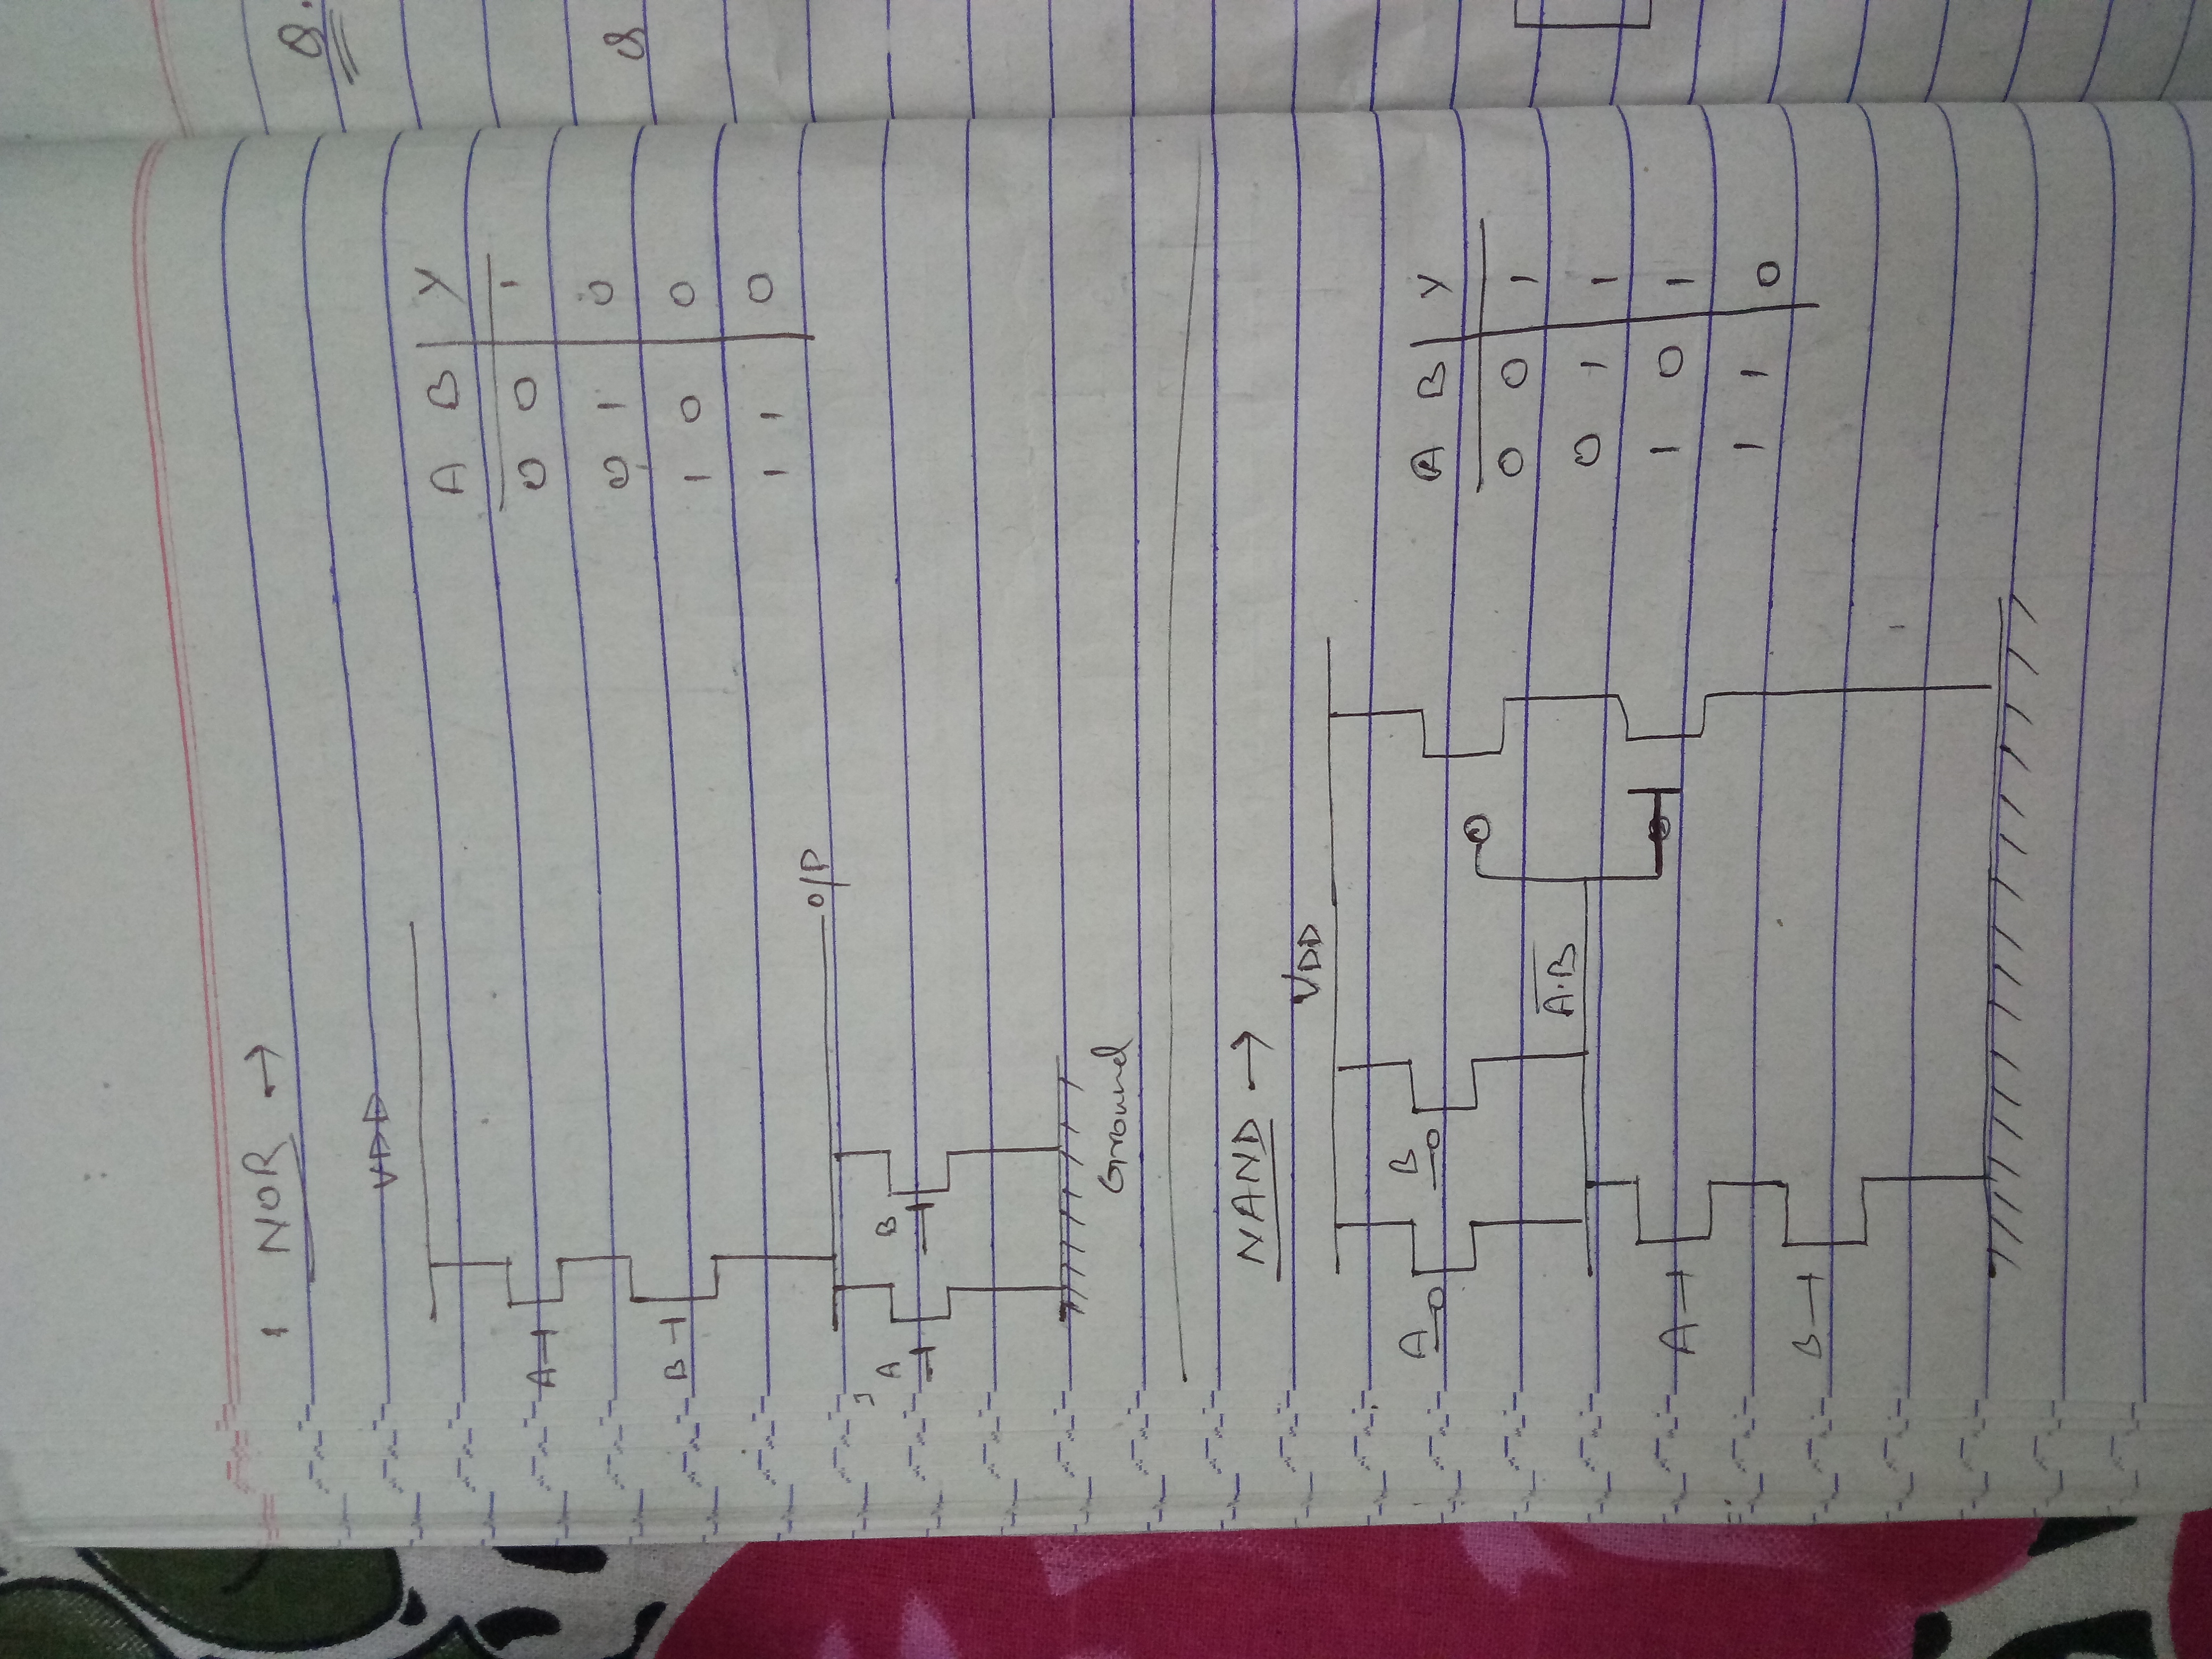 1 NOR →
VDD
A
B
O/P
A B
Ground
A B Y
0 0 1
0 1 0
1 0 0
1 1 0
NAND →
VDD
A B
A̅·̅B̅
A
B
A B Y
0 0 1
0 1 1
1 0 1
1 1 0
Q.
Q